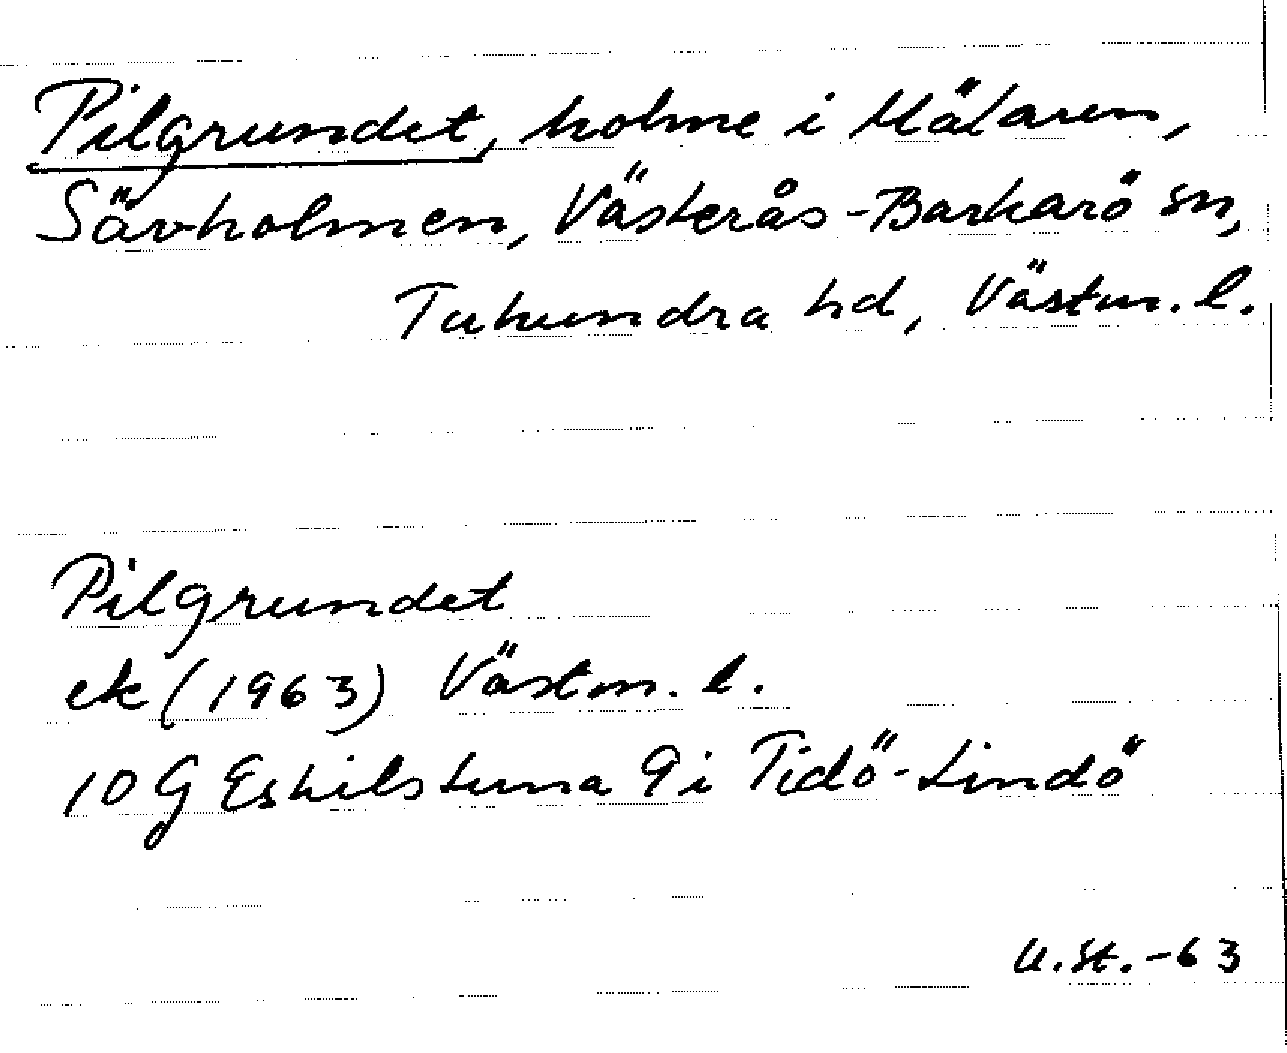 Pilgrundet, holme i Mälaren,
Sävholmen, Västerås-Barkarö sn,
Tuhundra hd, Västm. l.
Pilgrundet
ek (1963) Västm. l.
10 G Eskilstuna 9 i Tidö-Lindö
U.St.-63